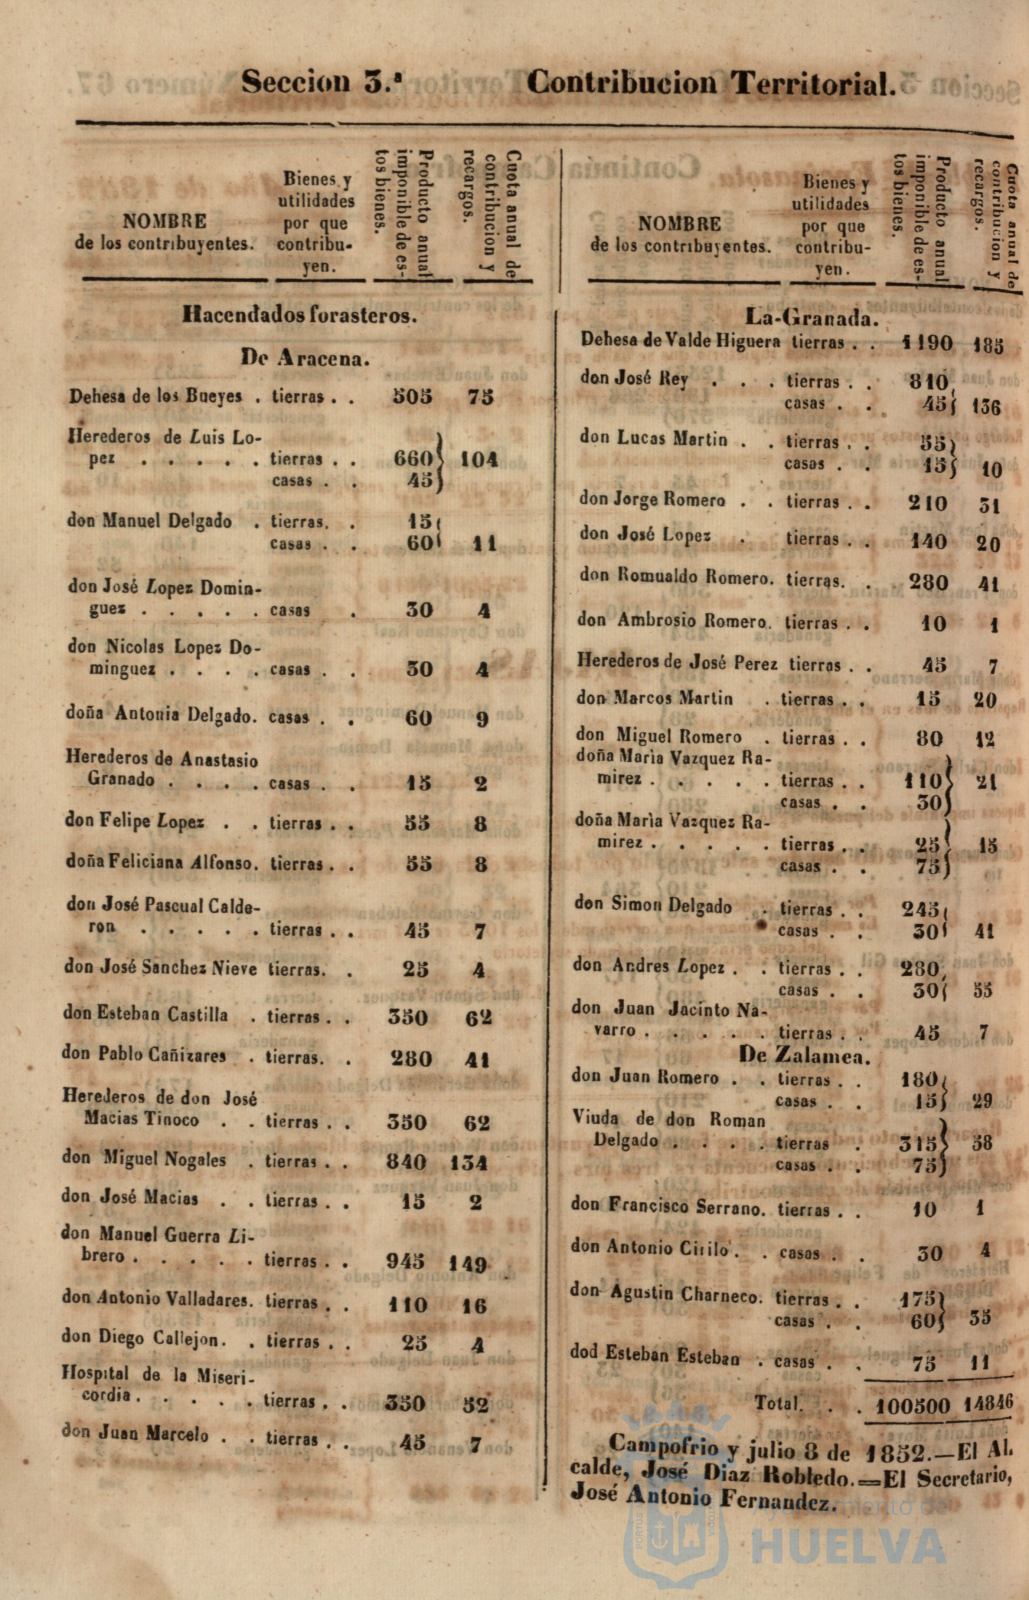 Seccion 3.ª Contribucion Territorial.
NOMBRE
de los contribuyentes.
Bienes y
utilidades
por que
contribu-
yen.
Producto anual
imponible de es-
tos bienes.
Cuota anual de
contribucion y
recargos.
Hacendados forasteros.
De Aracena.
Dehesa de los Bueyes . tierras . . 505 75
Herederos de Luis Lo-
pez . . . . . tierras . . 660 104
casas . . 45
don Manuel Delgado . tierras. . 15
casas . . 60 11
don José Lopez Domin-
guez . . . . . casas . 30 4
don Nicolas Lopez Do-
minguez . . . . casas . . 30 4
doña Antonia Delgado. casas . . 60 9
Herederos de Anastasio
Granado . . . . casas . . 15 2
don Felipe Lopez . . tierras . . 55 8
doña Feliciana Alfonso. tierras . . 55 8
don José Pascual Calde-
ron . . . . . tierras . . 45 7
don José Sanchez Nieve tierras. . 25 4
don Esteban Castilla . tierras . . 350 62
don Pablo Cañizares . tierras. . 280 41
Herederos de don José
Macias Tinoco . . tierras . . 350 62
don Miguel Nogales . tierras . . 840 134
don José Macias . . tierras . . 15 2
don Manuel Guerra Li-
brero . . . . . tierras . . 945 149
don Antonio Valladares. tierras . . 110 16
don Diego Callejon. . tierras . . 25 4
Hospital de la Miseri-
cordia . . . . . tierras . . 350 52
don Juan Marcelo . . tierras . . 45 7
NOMBRE
de los contribuyentes.
Bienes y
utilidades
por que
contribu-
yen.
Producto anual
imponible de es-
tos bienes.
Cuota anual de
contribucion y
recargos.
La-Granada.
Dehesa de Valde Higuera tierras . . 1190 185
don José Rey . . . tierras . . 810
casas . . 45 136
don Lucas Martin . . tierras . . 55
casas . . 15 10
don Jorge Romero . . tierras . . 210 31
don José Lopez . tierras . . 140 20
don Romualdo Romero. tierras. . 280 41
don Ambrosio Romero. tierras . . 10 1
Herederos de José Perez tierras . . 45 7
don Marcos Martin . tierras . . 15 20
don Miguel Romero . tierras . . 80 12
doña Maria Vazquez Ra-
mirez . . . . . tierras . . 110 21
casas . . 30
doña Maria Vazquez Ra-
mirez . . . . . tierras . . 25 15
casas . . 75
don Simon Delgado . tierras . . 245
casas . . 30 41
don Andres Lopez . . tierras . . 280
casas . . 30 55
don Juan Jacinto Na-
varro . . . . . tierras . . 45 7
De Zalamea.
don Juan Romero . . tierras . . 180
casas . . 15 29
Viuda de don Roman
Delgado . . . . tierras . 315 58
casas . . 75
don Francisco Serrano. tierras . . 10 1
don Antonio Cirilo . . casas . . 30 4
don Agustin Charneco. tierras . . 175
casas . . 60 35
dod Esteban Esteban . casas . . 75 11
Total. . . 100500 14846
Campofrio y julio 8 de 1852.—El Al
calde, José Diaz Robledo.=El Secretario,
José Antonio Fernandez.
Ayuntamiento de
HUELVA